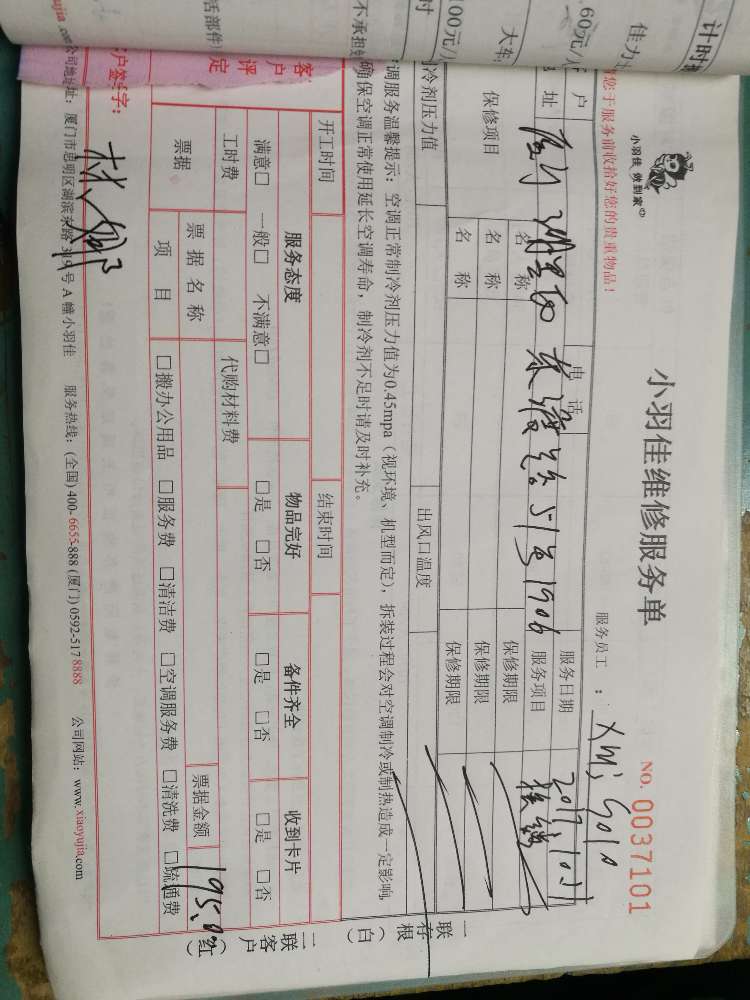 计时
佳力
大车
.60元/
100元/
时
不承担
活部件
小羽佳 做到家
小羽佳维修服务单
NO. 0037101
您于服务前收拾好您的贵重物品!
服务员工:
户
电话
服务日期
2017.10.31
址
东渡路51号1906
服务项目
保修项目
名称
保修期限
名称
保修期限
名称
保修期限
制冷剂压力值
出风口温度
调服务温馨提示:空调正常制冷剂压力值为0.45mpa(视环境、机型而定),拆装过程会对空调制冷或制热造成一定影响,
确保空调正常使用延长空调寿命,制冷剂不足时请及时补充。
开工时间
结束时间
客户评定
服务态度
物品完好
备件齐全
收到卡片
满意□ 一般□ 不满意□
□是 □否
□是 □否
□是 □否
工时费
代购材料费
票据
票据名称
票据金额
195.00
项目
□搬办公用品 □服务费 □清洁费 □空调服务费 □清洗费 □疏通费
客户签字:
一联存根(白)
二联客户(红)
公司地址:厦门市思明区湖滨东路319号A幢小羽佳 服务热线:(全国)400-6655-888 (厦门)0592-5178888 公司网站:www.xiaoyujia.com